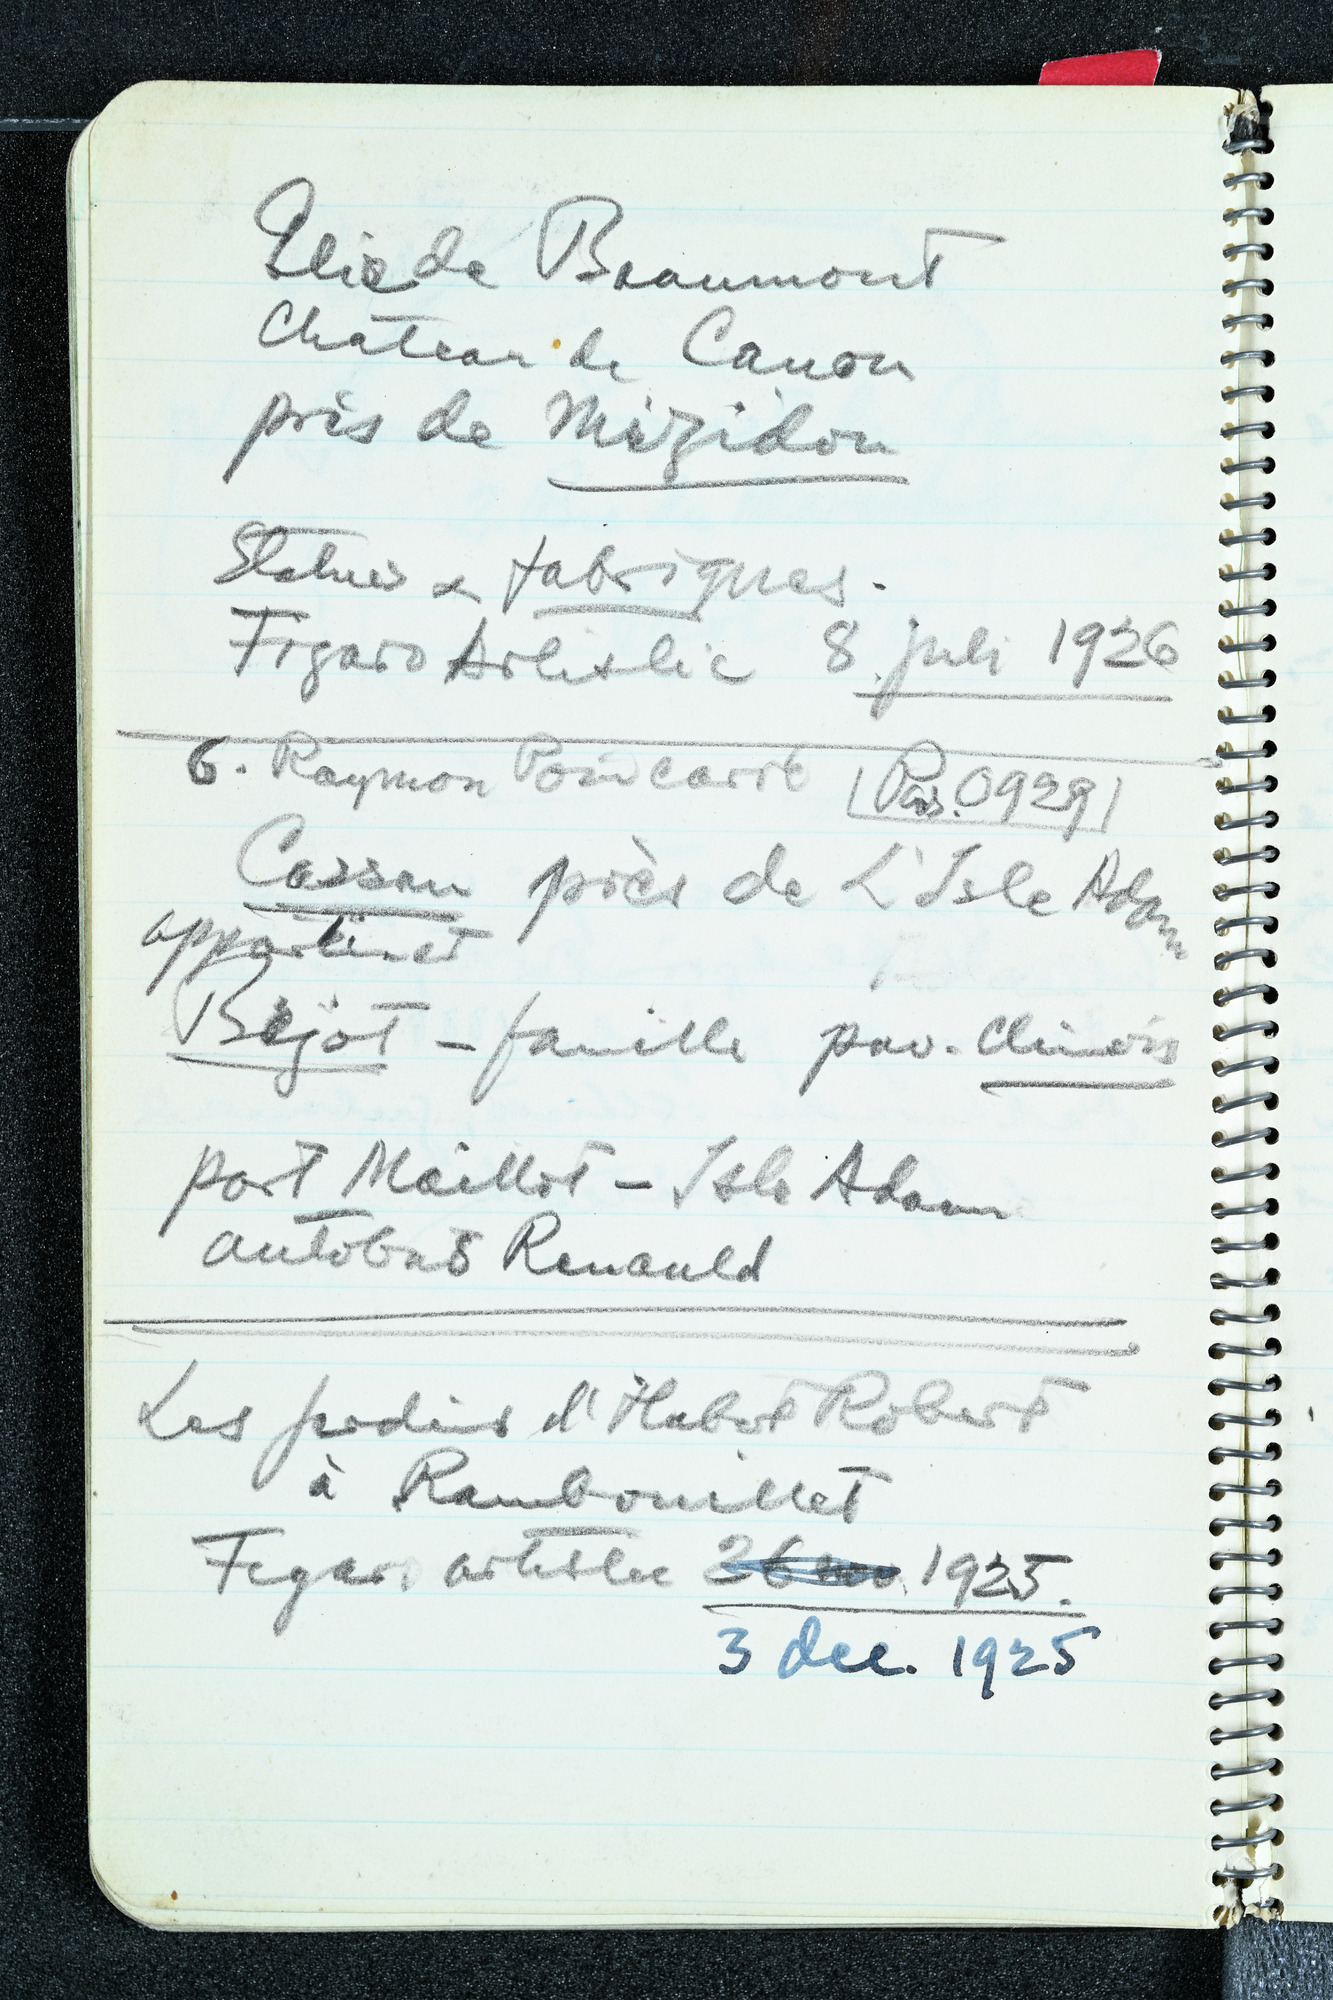 Elie de Beaumont
Chateau de Canon
près de Mézidon
Statues & fabriques.
Figaro Artistic 8. juli 1926
6. Raymon Poincarré Pas. 0929
Cassan près de L'Isle Adam
appartinet
Béjot - famille pav. chinois
port Maillot - Isle Adam
autobus Renauld
Les jardins d'Hubert Robert
à Rambouillet
Figaro artistic 1925.
3 dec. 1925